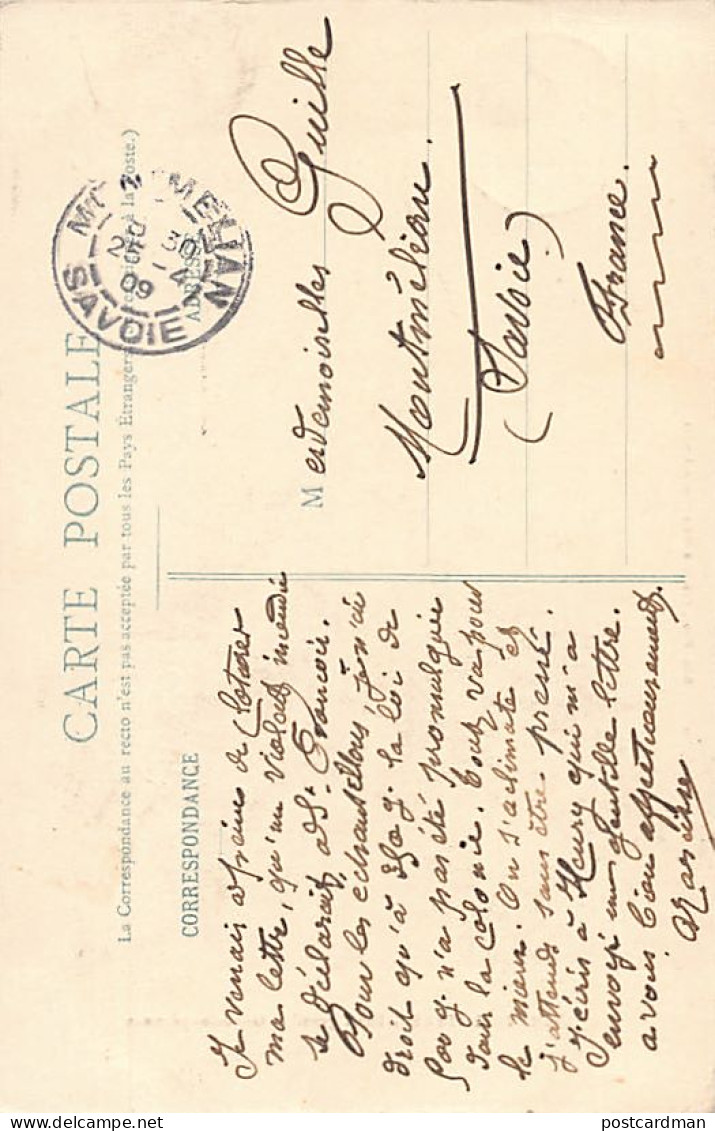 CARTE POSTALE
La Correspondance au recto n'est pas acceptée par tous les Pays Etrangers à la Poste.)
CORRESPONDANCE
ADRESSE
MONTMELIAN
2 30
09
SAVOIE
Mesdemoiselles Guille
Montmélian.
(Savoie)
France.
Je venais à peine de
ma lettre, qu'un violent incendie
se déclarait, à St. François.
Pour les échantillons, je n'ai
droit qu'à la loi de
n'a pas été promulguée
dans la colonie. Tout va pour
le mieux. On s'acclimate et
j'attends sans être pressé.
J'écris à Henry qui m'a
envoyé une gentille lettre.
à vous bien affectueusement.
postcardman